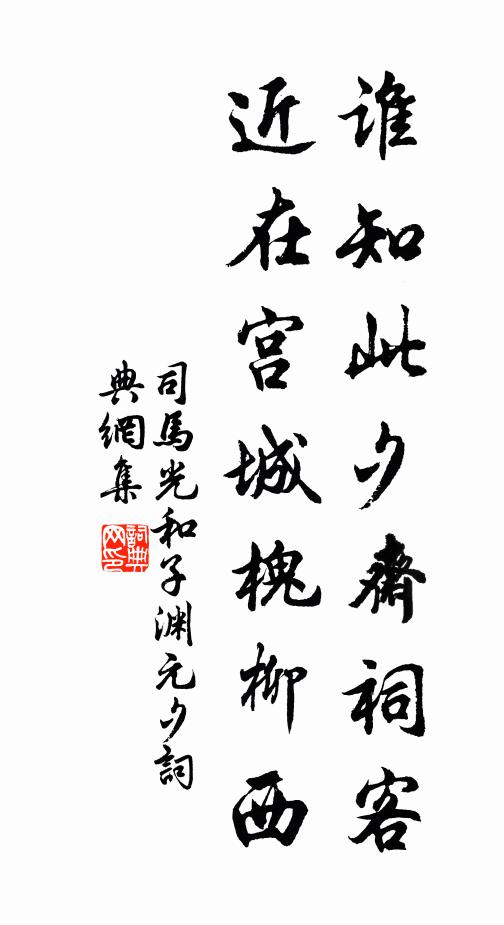 谁知此夕齋祠客
近在宫城槐柳西
司馬光和子淵元夕詞
典網集
詞典網印